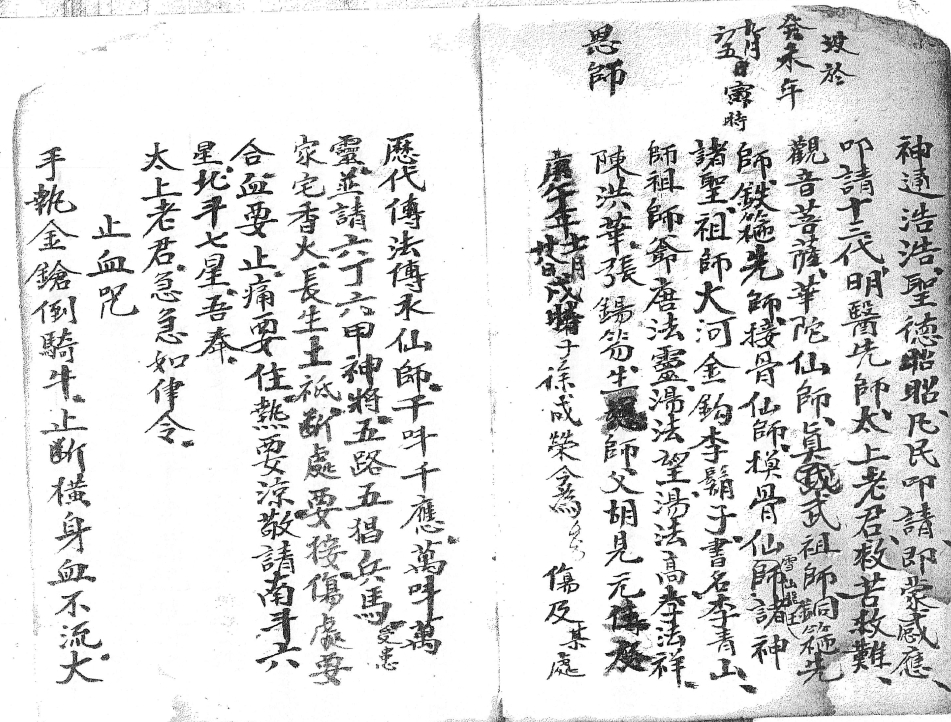 神通浩浩聖德昭昭凡民叩請即蒙感應、
叩請十三代、明醫先師、太上老君救苦救難、
觀音菩薩、華陀仙師、真武祖師銅箍先
師、鉄箍先師、接骨仙師、摸骨仙師、諸神
雪山龍王
諸聖、祖師大河金鈎李鬍子書名李青山、
師祖師爺唐法靈、湯法望、湯法高李法祥、
陳洪華、張錫笏生師父胡見元傳及
庚午年七月廿日戌時子徐成榮今為 傷及某處
歿於
癸未年
九月
初五日寅時
恩師
歷代傳法傳永仙師、千呌千應、萬呌萬
靈、並請六丁六甲神將、五路五猖兵馬受患
家宅香火、長生土祇、斷處要接、傷處要
合、血要止、痛要住、熱要涼、敬請南斗六
星、北斗七星、吾奉、
太上老君、急急如律令、
止血咒
手執金鎗倒騎牛、止斷橫身血不流、大